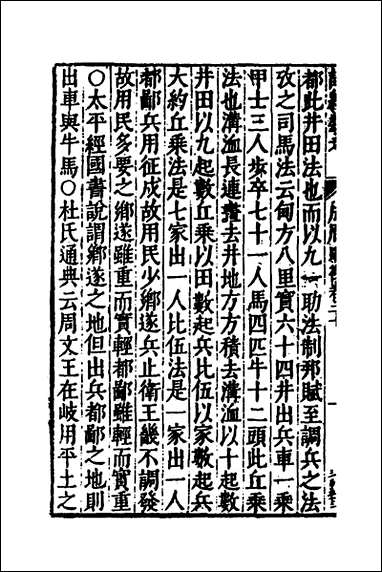 都此井田法也而以九一助法制那賦至調兵之法
攷之司馬法云甸方八里實六十四井出兵車一乘
甲士三人步卒七十一人馬四匹牛十二頭此丘乘
法也溝洫長連〿去井地方方積去溝洫以十起數
井田以九起數丘乘以田數起兵比伍以家數起兵
大約丘乘法是七家出一人比伍法是一家出一人
都鄙兵用征戍故用民少鄉遂兵止衛王畿不調發
故用民多要之鄉遂雖重而實輕都鄙雖輕而實重
〇太平經國書說謂鄉遂之地但出兵都鄙之地則
出車與牛馬〇杜氏通典云周文王在岐用平土之